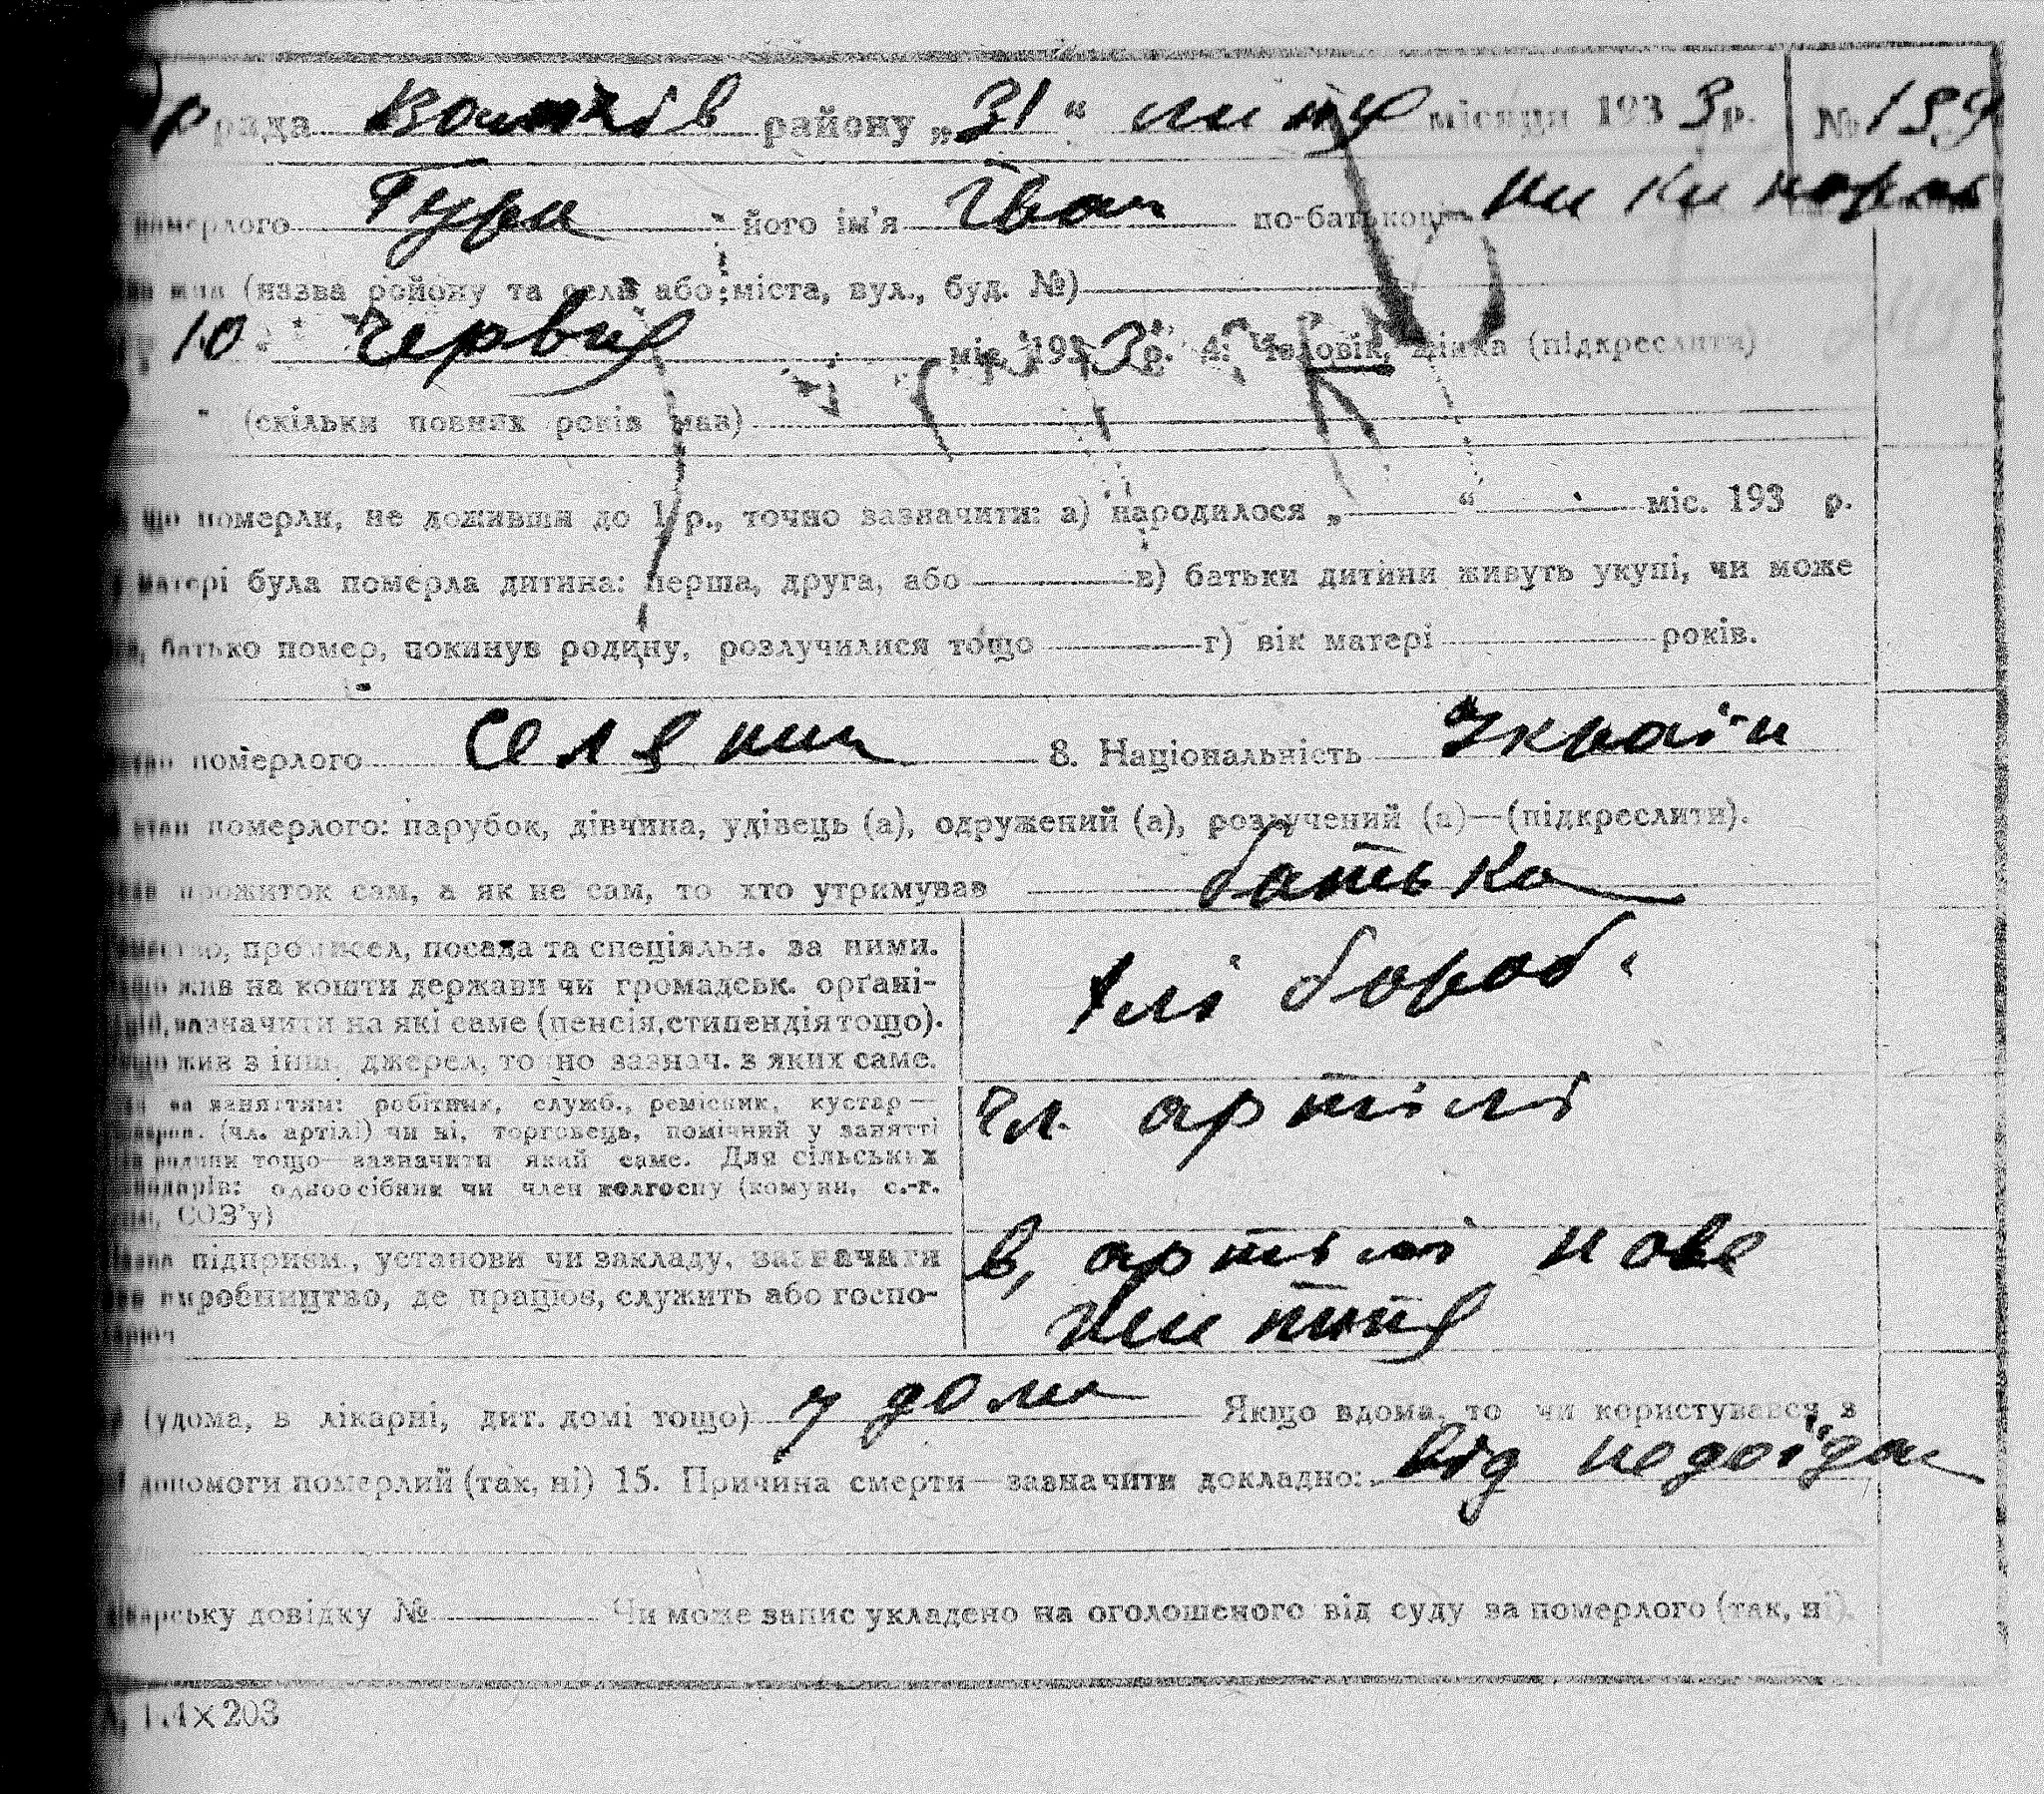 рада Вовчків району „31“ липня місяця 1933 р. № 139
померлого Гура його ім'я Іван по-батькові
жив (назва району та села або міста, вул., буд. №)
10 червня міс. 1933 р. 4. Чоловік, жінка (підкреслити)
(скільки повних років мав)
що померли, не доживши до 1 р., точно зазначити: а) народилося „ “ міс. 193 р.
матері була померла дитина: перша, друга, або в) батьки дитини живуть укупі, чи може
батько помер, покинув родину, розлучилися тощо г) вік матері років.
стан померлого селянин 8. Національність Україн
стан померлого: парубок, дівчина, удівець (а), одружений (а), розлучений (а)—(підкреслити).
прожиток сам, а як не сам, то хто утримував батько
промисел, посада та спеціяльн. за ними.
жив на кошти держави чи громадськ. орґані-
зазначити на які саме (пенсія, стипендія тощо).
жив з інш. джерел, точно зазнач. з яких саме.
хліібороб.
заняттям: робітник, служб., ремісник, кустар—
(чл. артілі) чи ні, торговець, помічний у занятті
родини тощо—зазначити який саме. Для сільських
господарів: одноосібник чи член колгоспу (комуни, с.-г.
СОЗ'у)
чл. артілі
підприєм., установи чи закладу, зазначити
виробництво, де працює, служить або госпо-
в, артілі нове
життя
(удома, в лікарні, дит. домі тощо) у дома Якщо вдома, то чи користувався з
допомоги померлий (так, ні) 15. Причина смерти—зазначити докладно: від недоїдан
лікарську довідку № Чи може запис укладено на оголошеного від суду за померлого (так, ні).
203